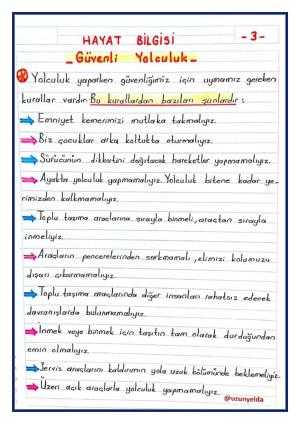 HAYAT BİLGİSİ
-3-
_ Güvenli Yolculuk _
Yolculuk yaparken güvenliğimiz için uymamız gereken
kurallar vardır. Bu kurallardan bazıları şunlardır :
Emniyet kemerimizi mutlaka takmalıyız.
Biz çocuklar arka koltukta oturmalıyız.
Sürücünün dikkatini dağıtacak hareketler yapmamalıyız.
Ayakta yolculuk yapmamalıyız. Yolculuk bitene kadar ye-
rimizden kalkmamalıyız.
Toplu taşıma araçlarına sırayla binmeli, araçtan sırayla
inmeliyiz.
Araçların pencerelerinden sarkmamalı, elimizi kolumuzu
dışarı çıkarmamalıyız.
Toplu taşıma araçlarında diğer insanları rahatsız edecek
davranışlarda bulunmamalıyız.
İnmek veya binmek için taşıtın tam olarak durduğundan
emin olmalıyız.
Servis araçlarını kaldırımın yola uzak bölümünde beklemeliyiz.
Üzeri açık araçlarla yolculuk yapmamalıyız.
@uzunyelda